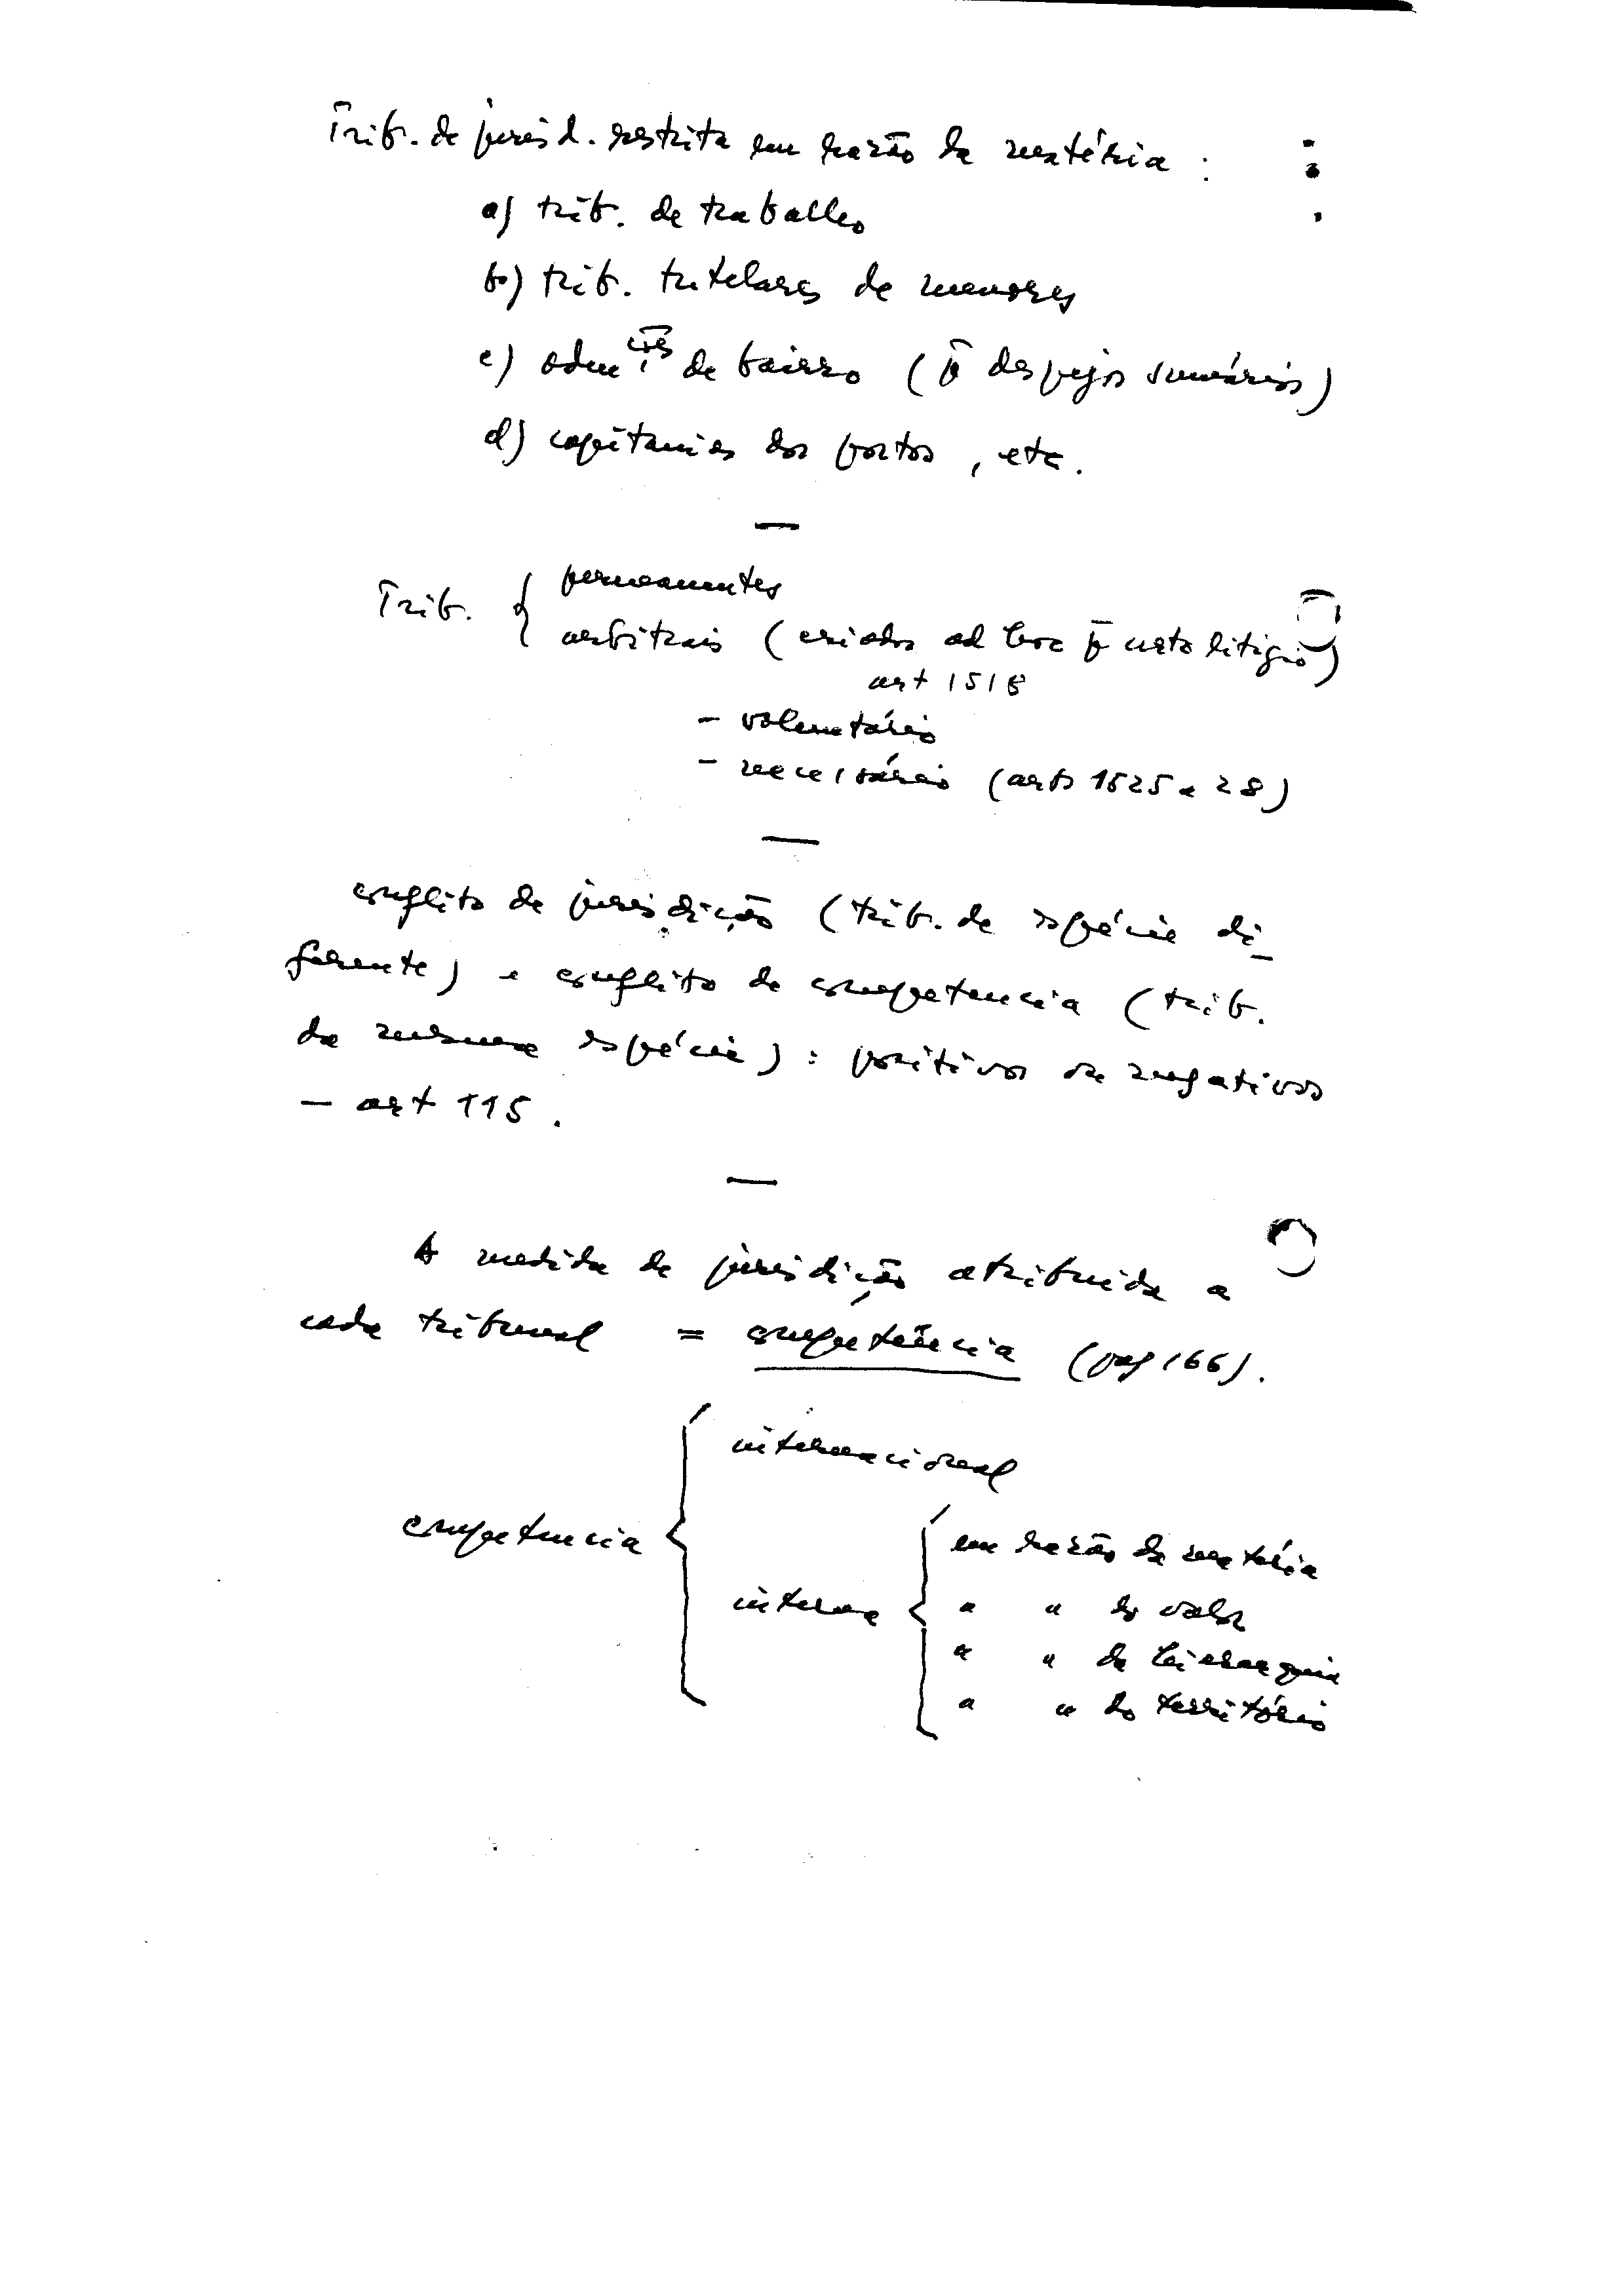 Trib. de jurisd. restrita em razão da matéria :
a) trib. de trabalho
b) trib. tutelares de menores
c) adm ções de bairro ( p̄ despejos sumários )
d) capitanias dos portos , etc.
—
Trib. { permanentes
arbitrais ( criados ad hoc p̄ certo litígio )
art 1518
- voluntário
- necessário (arts 1525 a 28)
—
conflito de jurisdição ( trib. de espécie di-
ferente ) e conflito de competencia ( trib.
da mesma espécie ) : positivos ou negativos
— art 115 .
—
A medida de jurisdição atribuida a
cada tribunal = competência (pag 166) .
competencia { internacional
interna { em razão da matéria
" " do valor
" " da hierarquia
" " do território